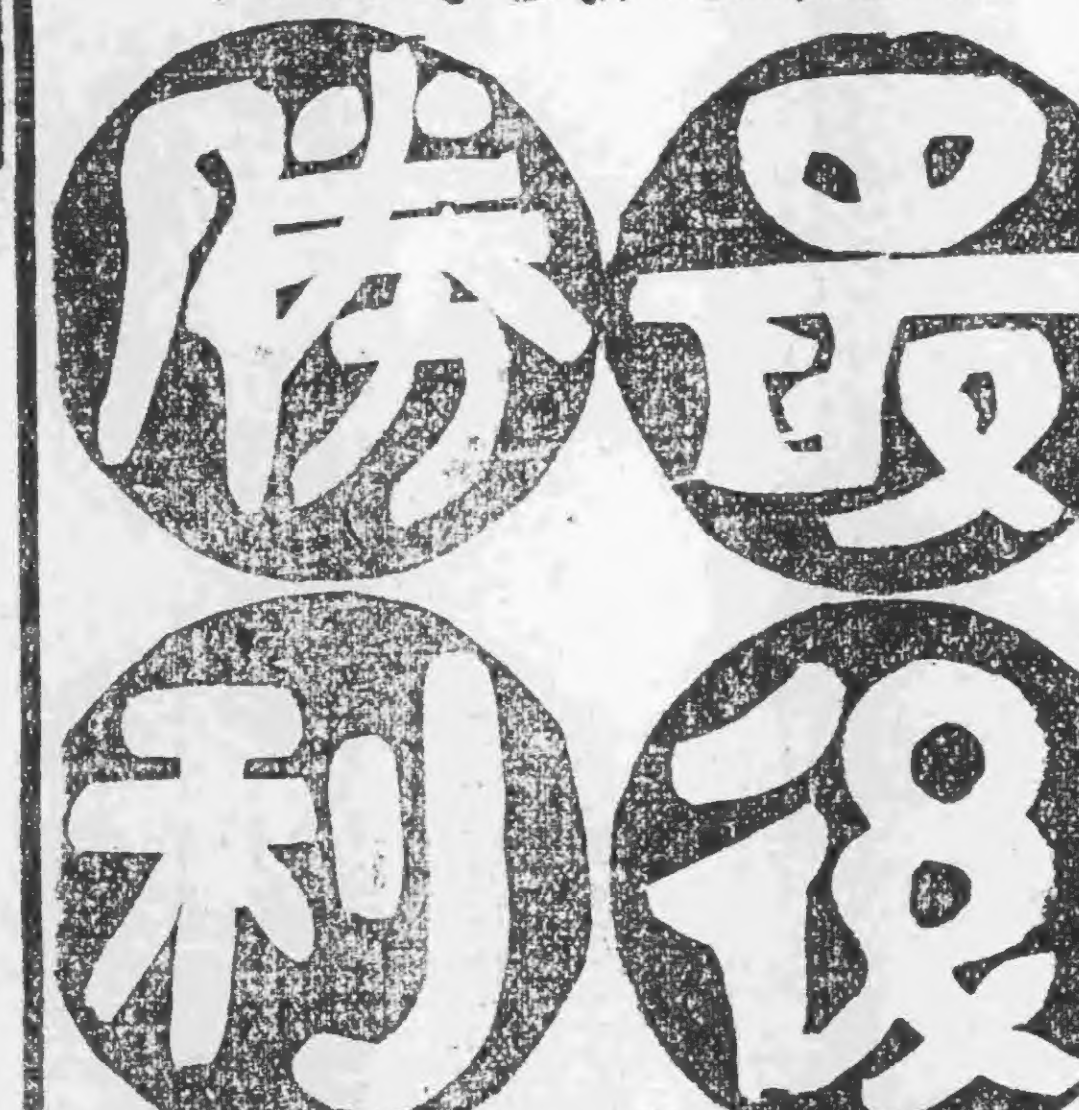 最後
勝利